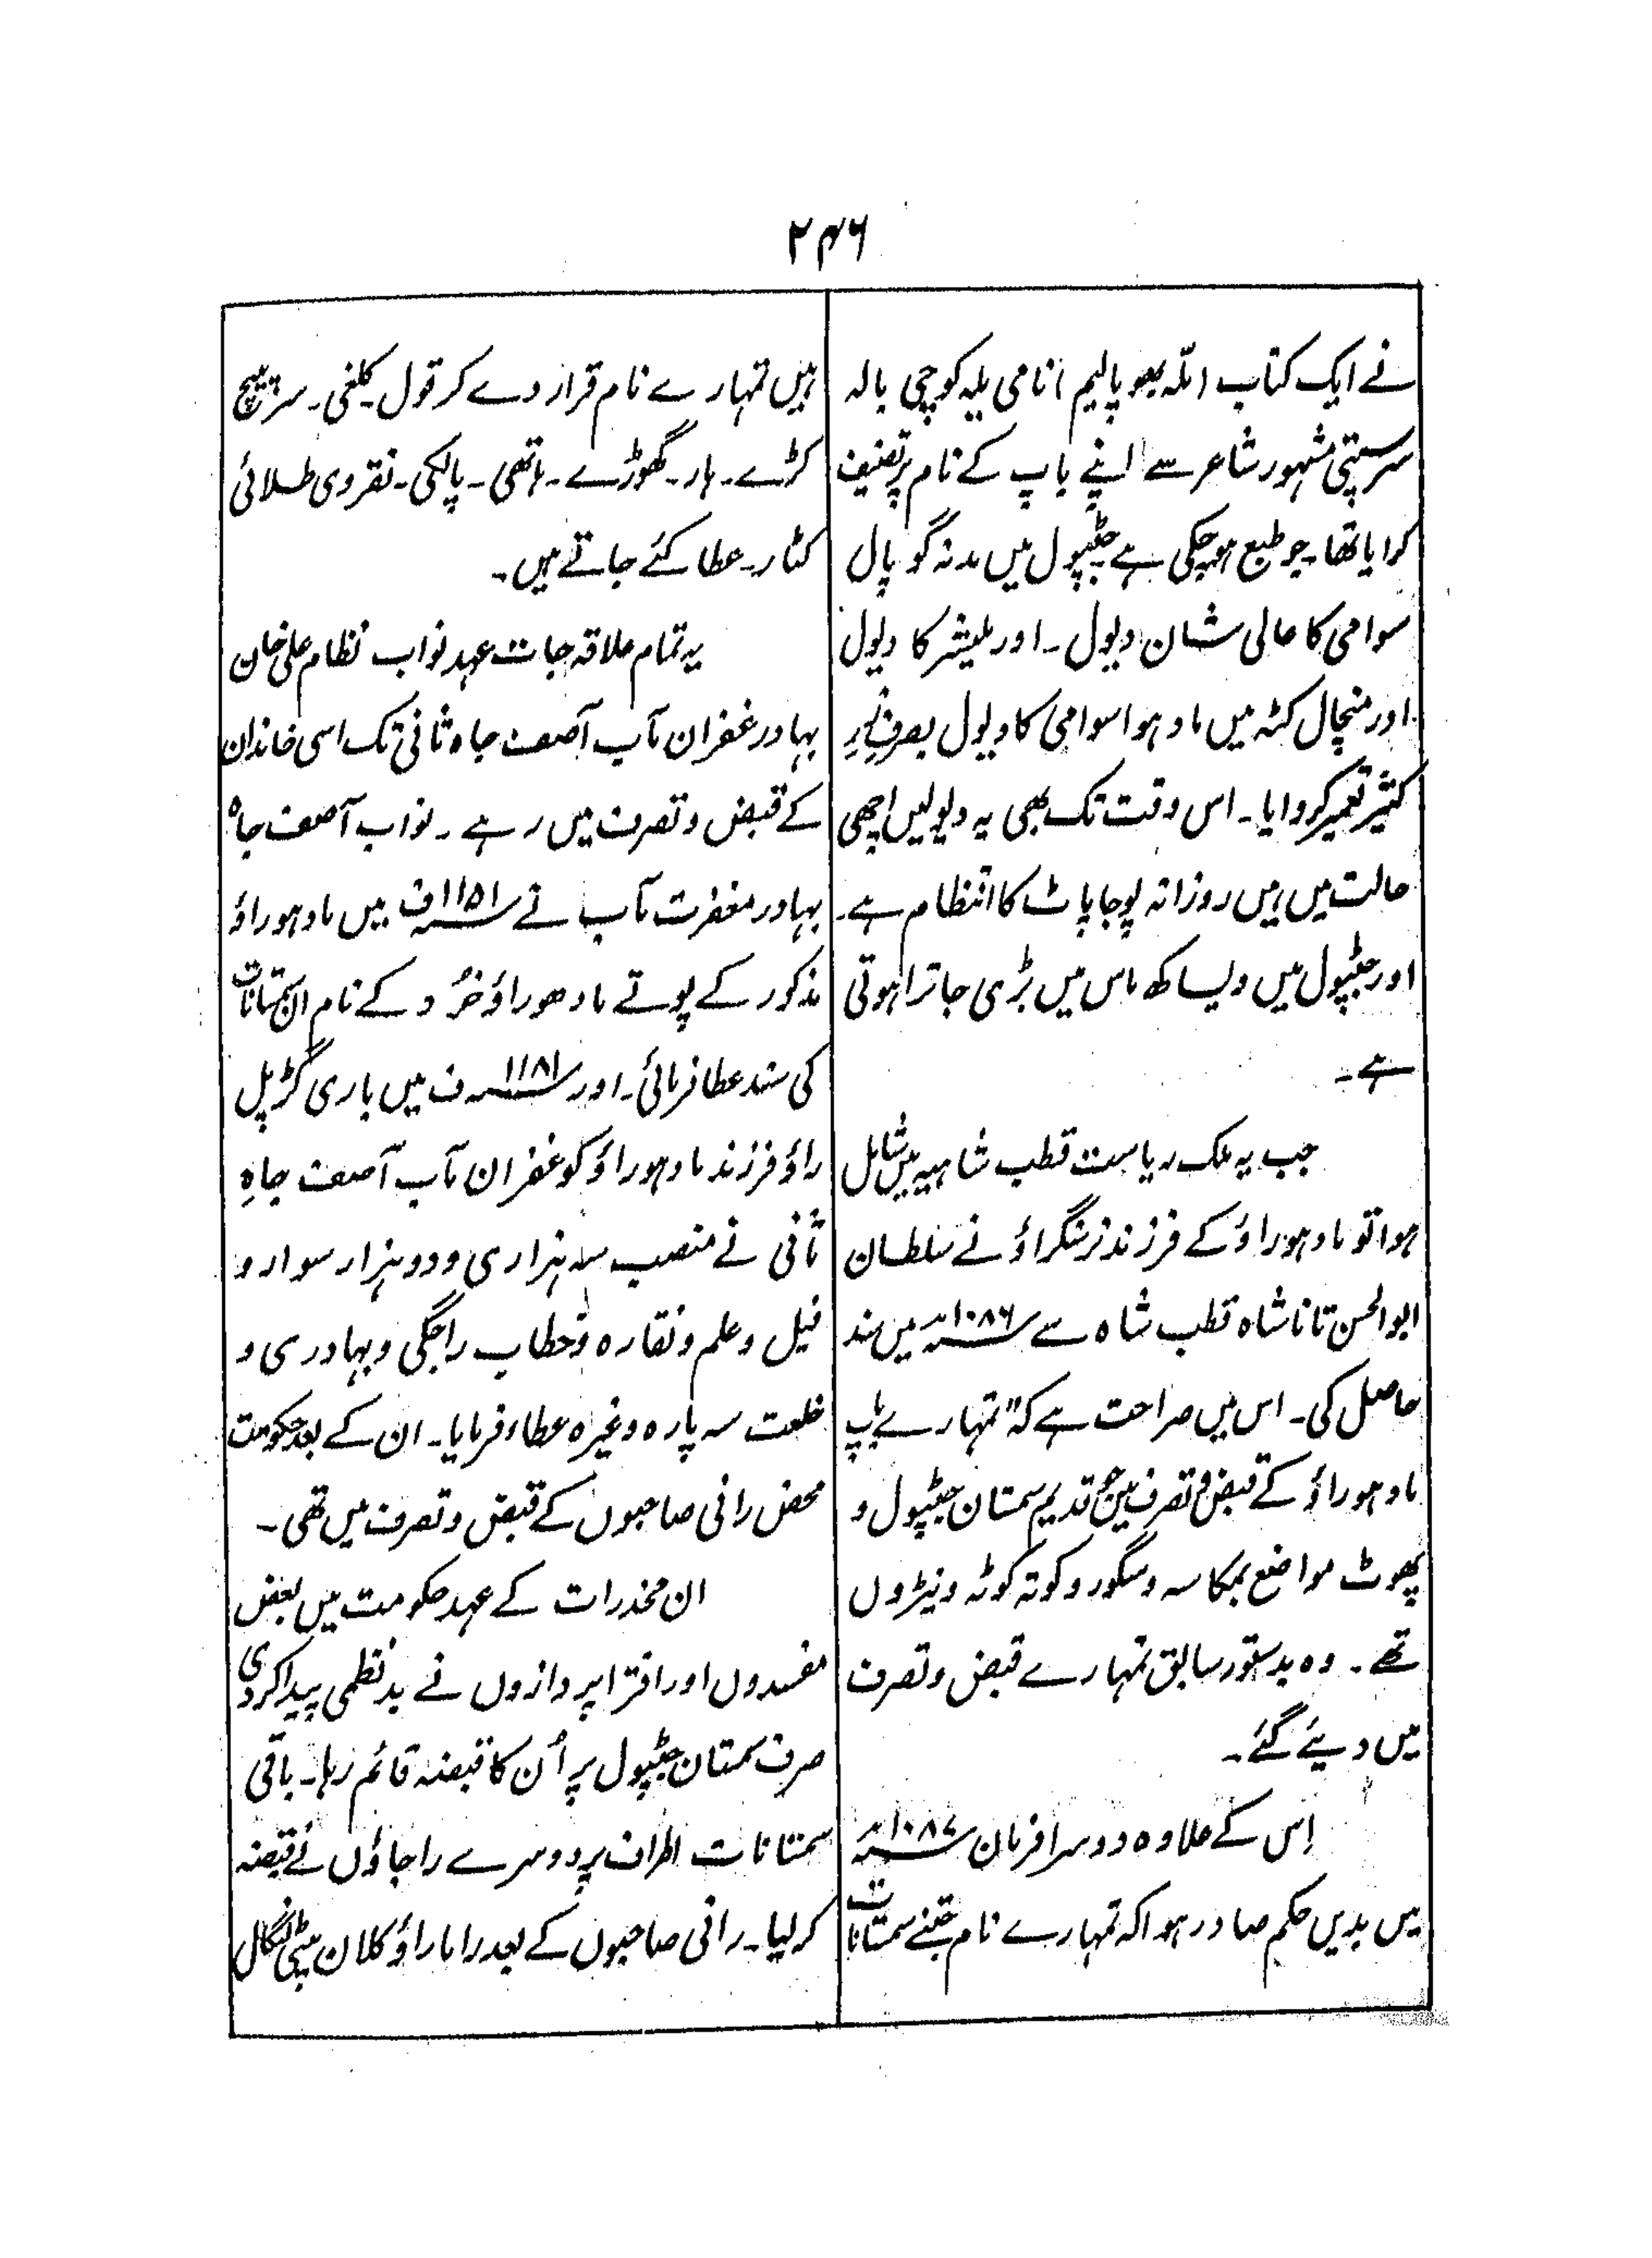 ۲۴۶
نے ایک کتاب (ملّہ بھوپالیم) نامی یلہ کوچی بالہ
سرسپتی مشہور شاعر سے اپنے باپ کے نام پر تصنیف
کرایا تھا۔ جو طبع ہو چکی ہے جٹپول میں مدنہ گوپال
سوامی کا عالی شان دیول۔ اور ملیشر کا دیول
اور منچال کٹہ میں مادہوا سوامی کا دیول بصرف زرِ
کثیر تعمیر کروایا۔ اس وقت تک بھی یہ دیولیں اچھی
حالت میں ہیں روزانہ پوجا پاٹ کا انتظام ہے۔
اور جٹپول میں ویساکھ ماس میں بڑی جاترا ہوتی
ہے۔
جب یہ ملک ریاست قطب شاہیہ میں شامل
ہوا تو مادہوراؤ کے فرزند نرسنگراؤ نے سلطان
ابوالحسن تانا شاہ قطب شاہ سے سنہ ۱۰۸۶ھ میں سند
حاصل کی۔ اس میں صراحت ہے کہ "تمہارے باپ
مادہوراؤ کے قبض و تصرف میں جو قدیم سمستان جٹپول و
پھوٹ مواضع بمکاسہ و سگور و کوتہ کوٹہ ونیڑوں
تھے۔ وہ بدستور سابق تمہارے قبض و تصرف
میں دیئے گئے۔
اِس کے علاوہ دوسرا فرمان سنہ ۱۰۸۷ھ
میں بدیں حکم صادر ہوا کہ تمہارے نام جتنے سمستانات
ہیں تمہارے نام قرار دے کر قول۔ کلغی۔ سرپیچ
کڑے۔ ہار۔ گھوڑے۔ ہاتھی۔ پالکی۔ نقروی طلائی
کٹار۔ عطا کئے جاتے ہیں۔
یہ تمام علاقہ جات عہد نواب نظام علی خان
بہادر غفران مآب آصف جاہ ثانی تک اسی خاندان
کے قبض و تصرف میں رہے۔ نواب آصف جاہ
بہادر مغفرت مآب نے سنہ ۱۱۵۱ف میں مادہوراؤ
مذکور کے پوتے مادھوراؤ خرُد کے نام ان سمستانات
کی سند عطا فرمائی۔ اور سنہ ۱۱۸۱ ف میں باری گڑپل
راؤ فرزند مادہوراؤ کو غفران مآب آصف جاہِ
ثانی نے منصب سہ ہزاری و دو ہزار سوار و
فیل و علم و نقارہ و خطاب راجگی و بہادری و
خلعت سہ پارہ وغیرہ عطاء فرمایا۔ ان کے بعد حکومت
محض رانی صاحبوں کے قبض و تصرف میں تھی۔
ان مخدرات کے عہد حکومت میں بعض
مفسدوں اور افترا پردازوں نے بدنظمی پیدا کردی
صرف سمستان جٹپول پر اُن کا قبضہ قائم رہا۔ باقی
سمتانات اطراف پر دوسرے راجاؤں نے قبضہ
کرلیا۔ رانی صاحبوں کے بعد راماراؤ کلان